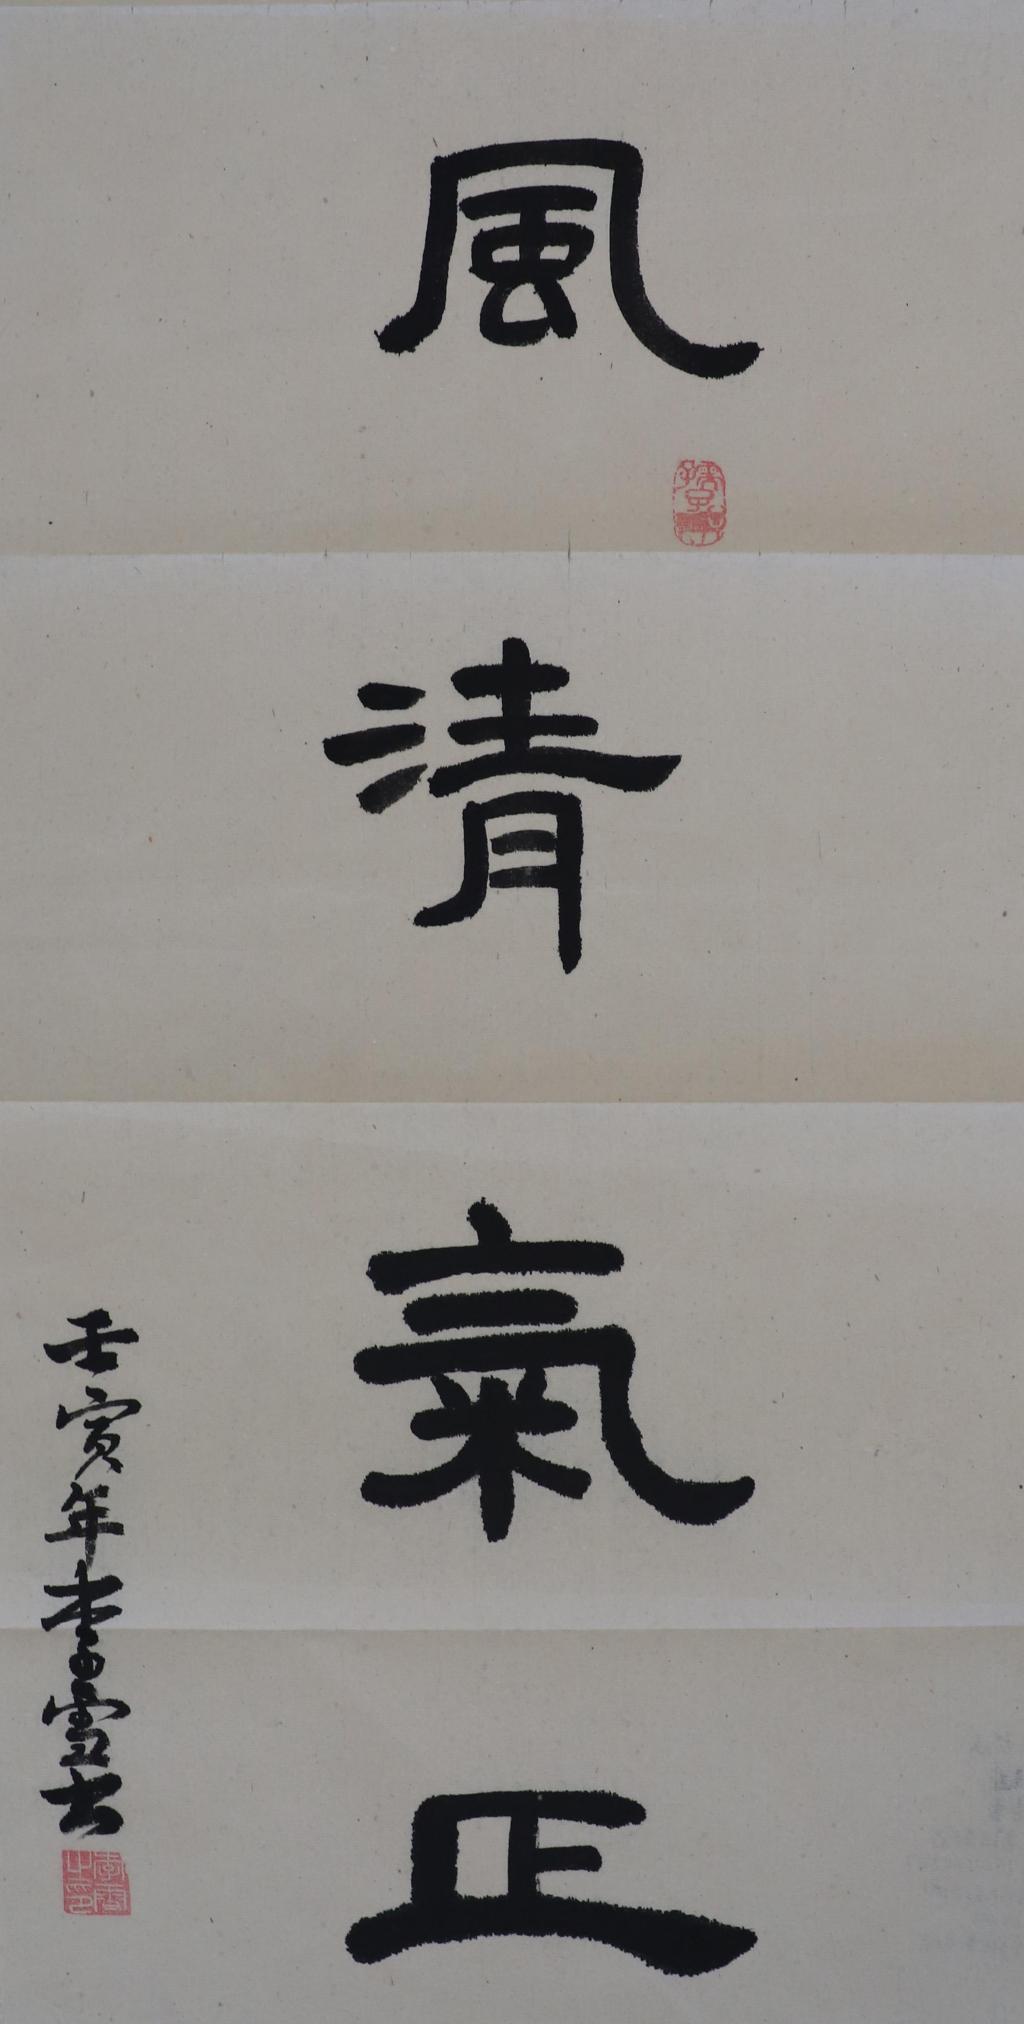 風
清
氣
正
壬寅年李雪书